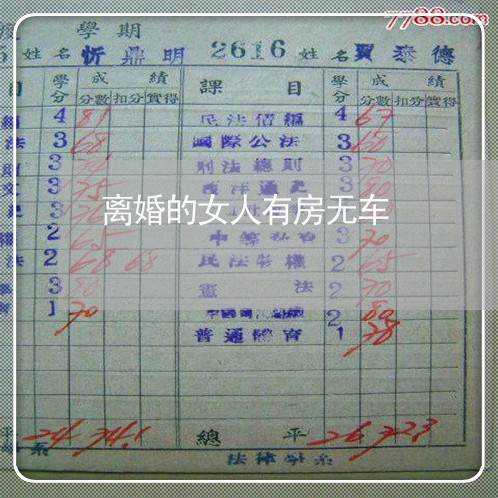 7788.com
學期
姓名 忻鼎明 2616 姓名 賈泰德
目 學分 成績 課目 學分 成績
分數 扣分 實得 分數 扣分 實得
4 81 民法債編 4 67
法 3 68 國際公法 3 60
3 刑法總則 3 70
3 75 西洋通史 3 80
離婚的女人有房无车
2 65 3 70
法 2 68 68 民法物權 2 65
3 80 憲法 2 70
1 70 2 80
普通體育 1 78
平 24 74.1 總平 26 72.3
系 法律學系